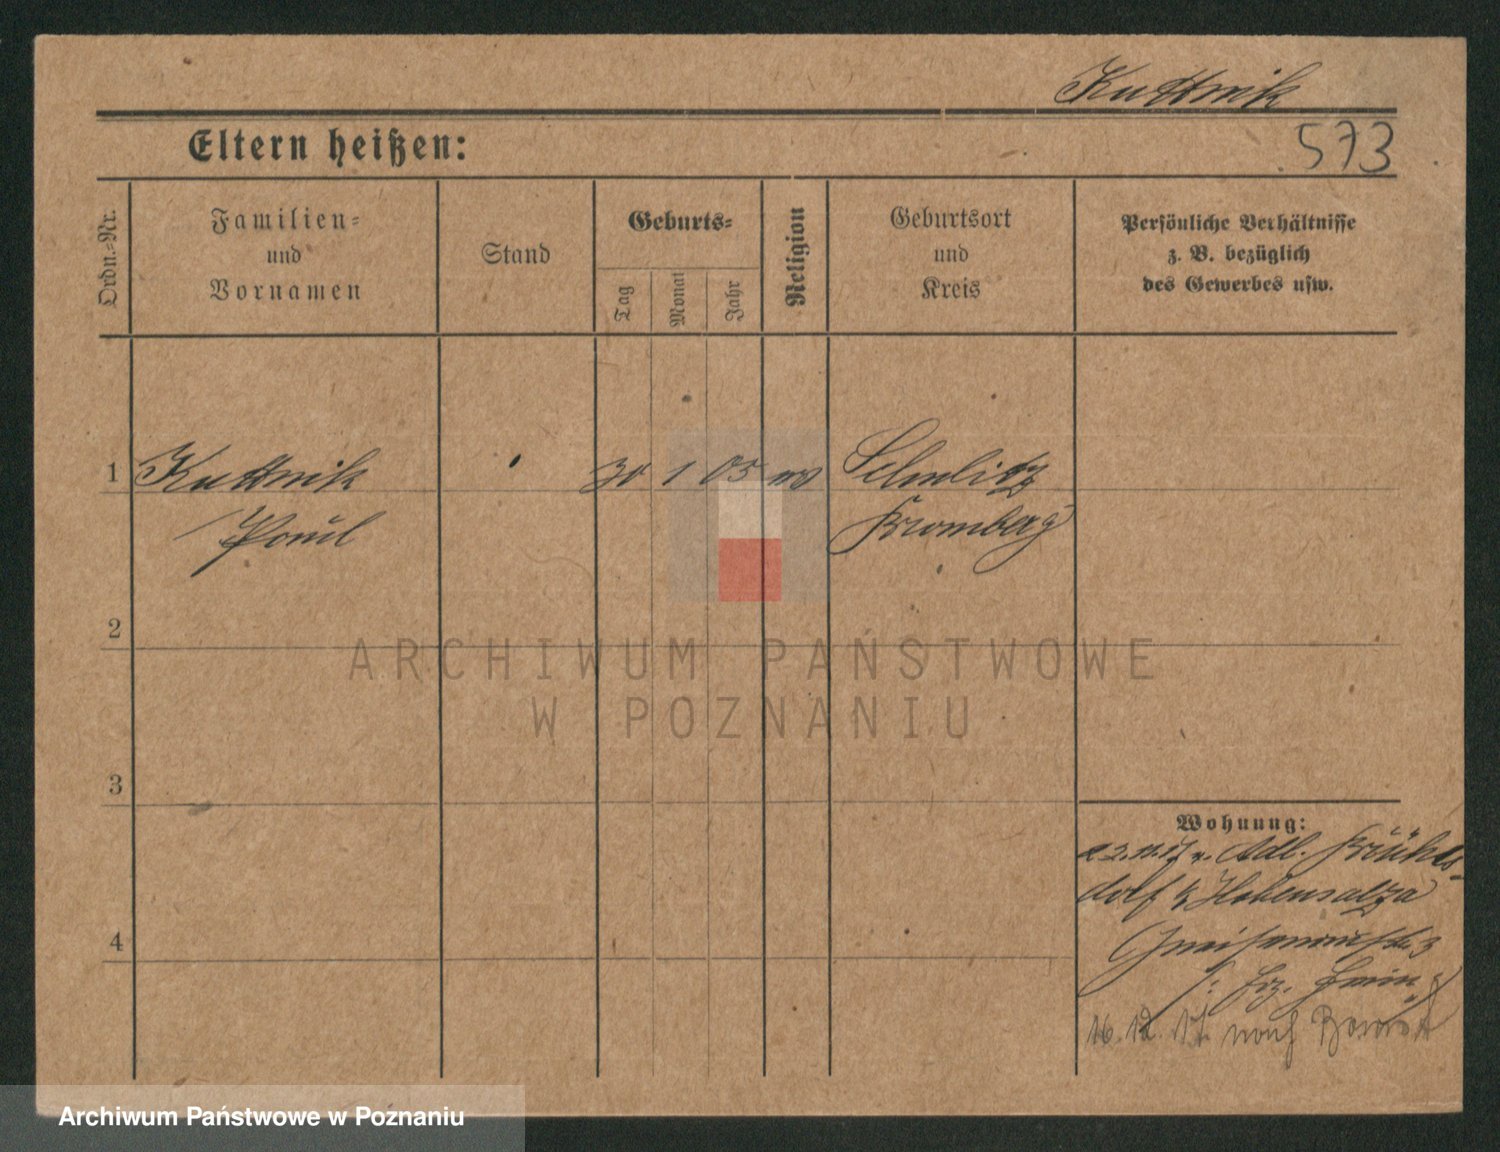 Kuttnik
573
Eltern heißen:
Ordn.-Nr.
Familien-
und
Vornamen
Stand
Geburts-
Tag
Monat
Jahr
Religion
Geburtsort
und
Kreis
Persönliche Verhältnisse
z. B. bezüglich
des Gewerbes usw.
1
Kuttnik
30 1 05
Paul
Bromberg
2
ARCHIWUM PAŃSTWOWE
W POZNANIU
3
Wohnung:
Adl.
dorf Hohensalza
4
Gneisenaustr. 3
16. 12. 17 nach
Archiwum Państwowe w Poznaniu